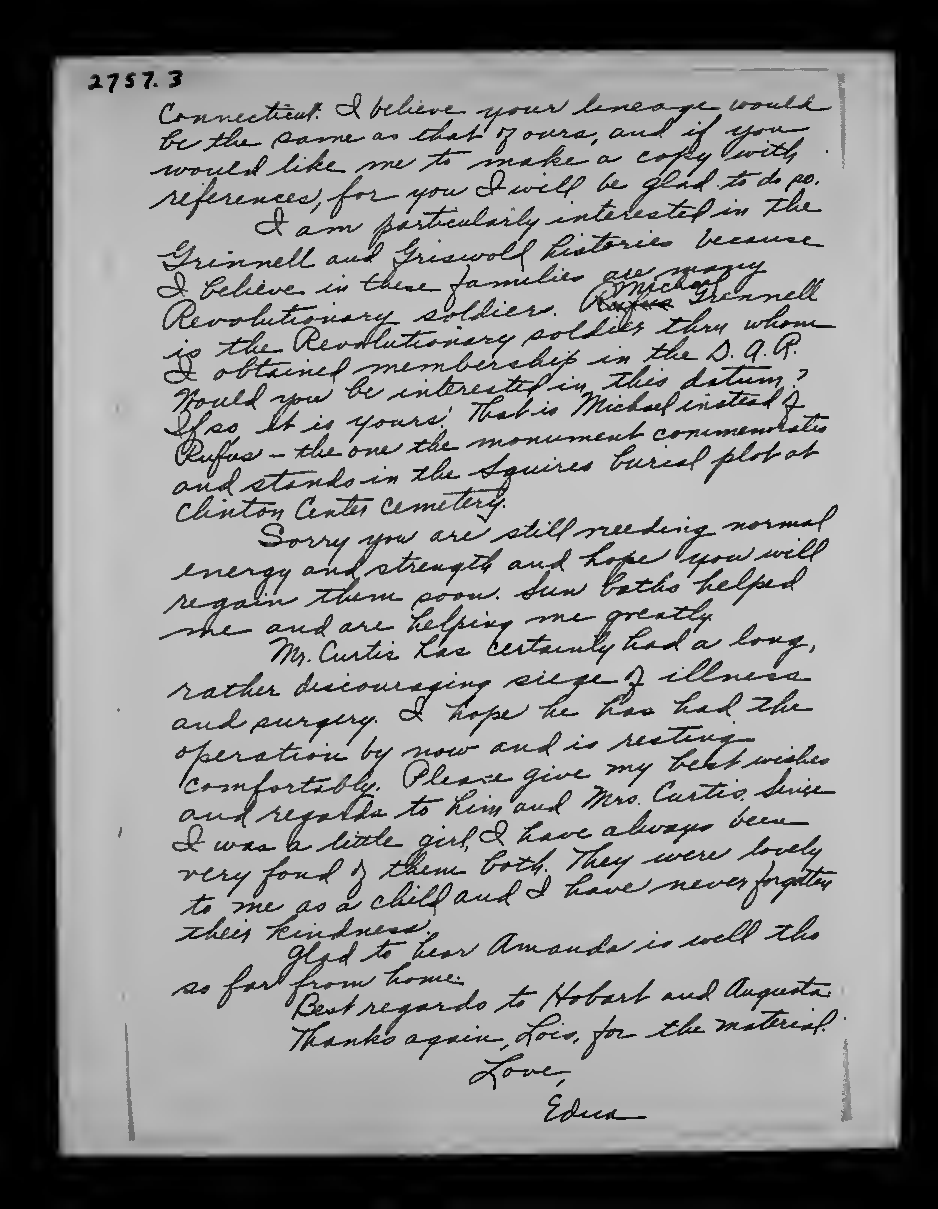 2757.3
Connecticut. I believe your lineage would
be the same as that of ours, and if you
would like me to make a copy with
references, for you I will be glad to do so.
I am particularly interested in the
Grinnell and Griswold histories because
I believe in these families are many
Michael
Revolutionary soldiers. Rufus Grennell
is the Revolutionary soldier thru whom
I obtained membership in the D.A.R.
Would you be interested in this datum?
If so it is yours! That is Michael instead of
Rufus – the one the monument commemorates
and stands in the Squires burial plot at
Clinton Center cemetery.
Sorry you are still needing normal
energy and strength and hope you will
regain them soon. Sun baths helped
me and are helping me greatly
Mr. Curtis has certainly had a long,
rather discouraging siege of illness
and surgery. I hope he has had the
operation by now and is resting
comfortably. Please give my best wishes
and regards to him and Mrs. Curtis. Since
I was a little girl, I have always been
very fond of them both. They were lovely
to me as a child and I have never forgotten
their kindness.
Glad to hear Amanda is well tho
so far from home.
Best regards to Hobart and Augusta.
Thanks again, Lois, for the material.
Love,
Edna